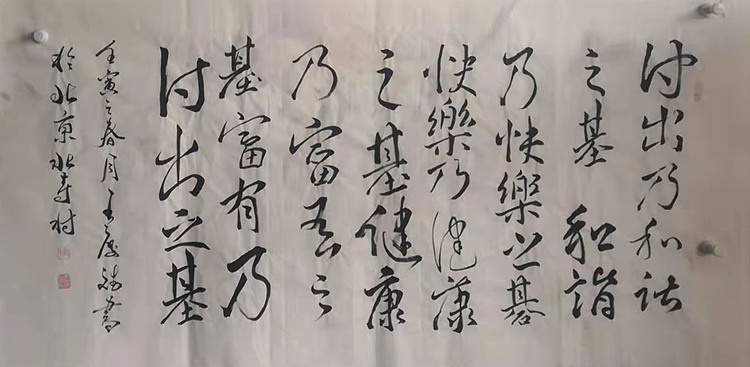 付出乃和諧
之基和諧
乃快樂之基
快樂乃健康
之基健康
乃富有之
基富有乃
付出之基
壬寅之春月王慶書
於北京北寺村